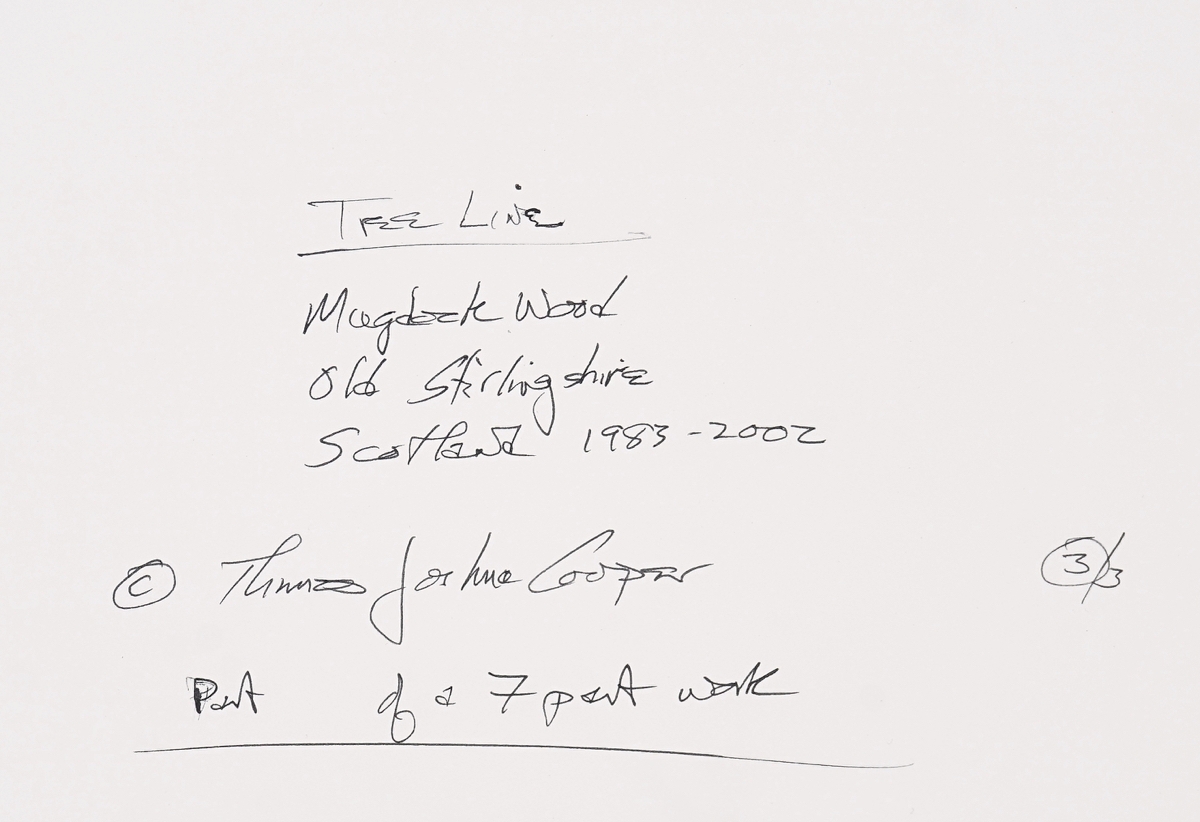 TREE LINE
Mugdock Wood
Old Stirlingshire
Scotland 1983-2002
© Thomas Joshua Cooper 3/3
Part of a 7 part work